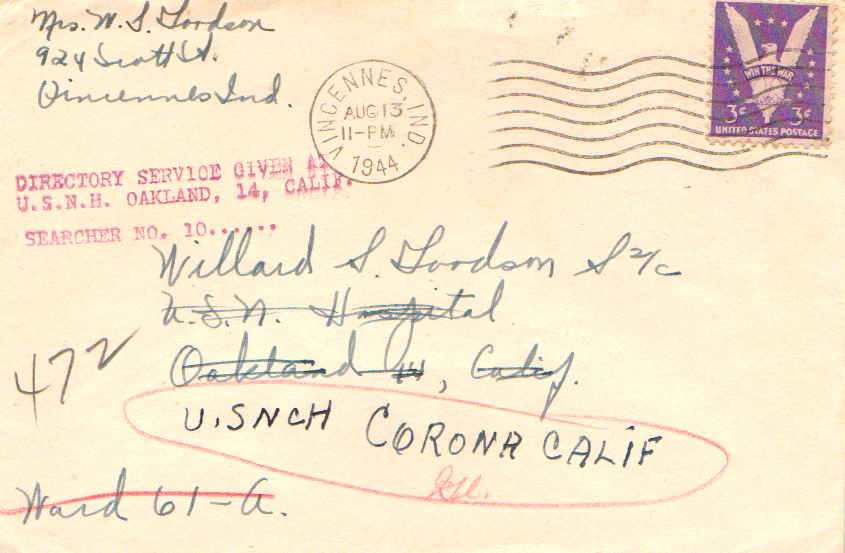 Mrs. W. S. Goodson
924 Scott St.
Vincennes Ind.
VINCENNES, IND.
AUG 13
11-PM
1944
WIN THE WAR
3¢ 3¢
UNITED STATES POSTAGE
DIRECTORY SERVICE GIVEN AT
U.S.N.H. OAKLAND, 14, CALIF.
SEARCHER NO. 10......
Willard S. Goodson S 2/c
U.S.N. Hospital
Oakland 14, Calif.
472
U.SNCH CORONA CALIF
Ward 61-A.